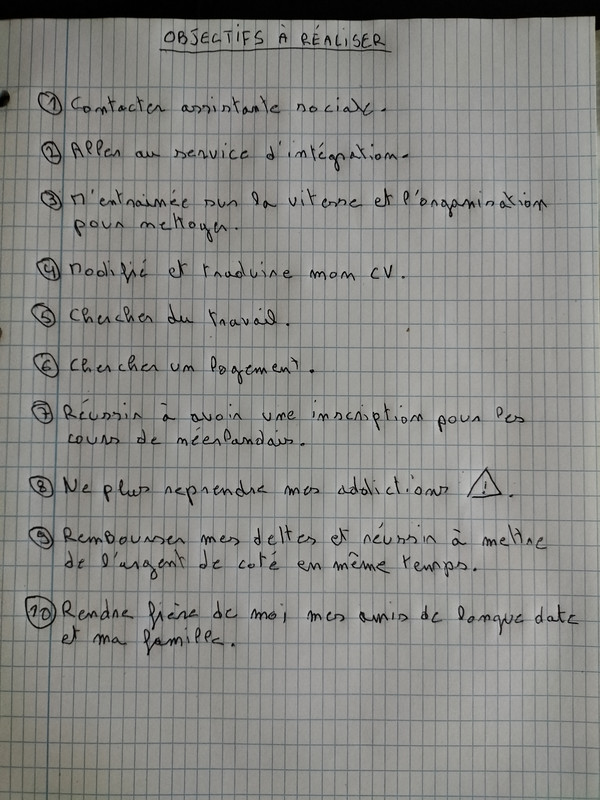 OBJECTIFS À RÉALISER
① Contacter assistante sociale.
② Aller au service d'intégration.
③ M'entrainée sur la vitesse et l'organisation
pour nettoyer.
④ Modifié et traduire mon CV.
⑤ Chercher du travail.
⑥ Chercher un logement.
⑦ Réussir à avoir une inscription pour les
cours de néerlandais.
⑧ Ne plus reprendre mes addictions ⚠.
⑨ Rembourser mes dettes et réussir à mettre
de l'argent de coté en même temps.
⑩ Rendre fière de moi, mes amis de longue date
et ma famille.